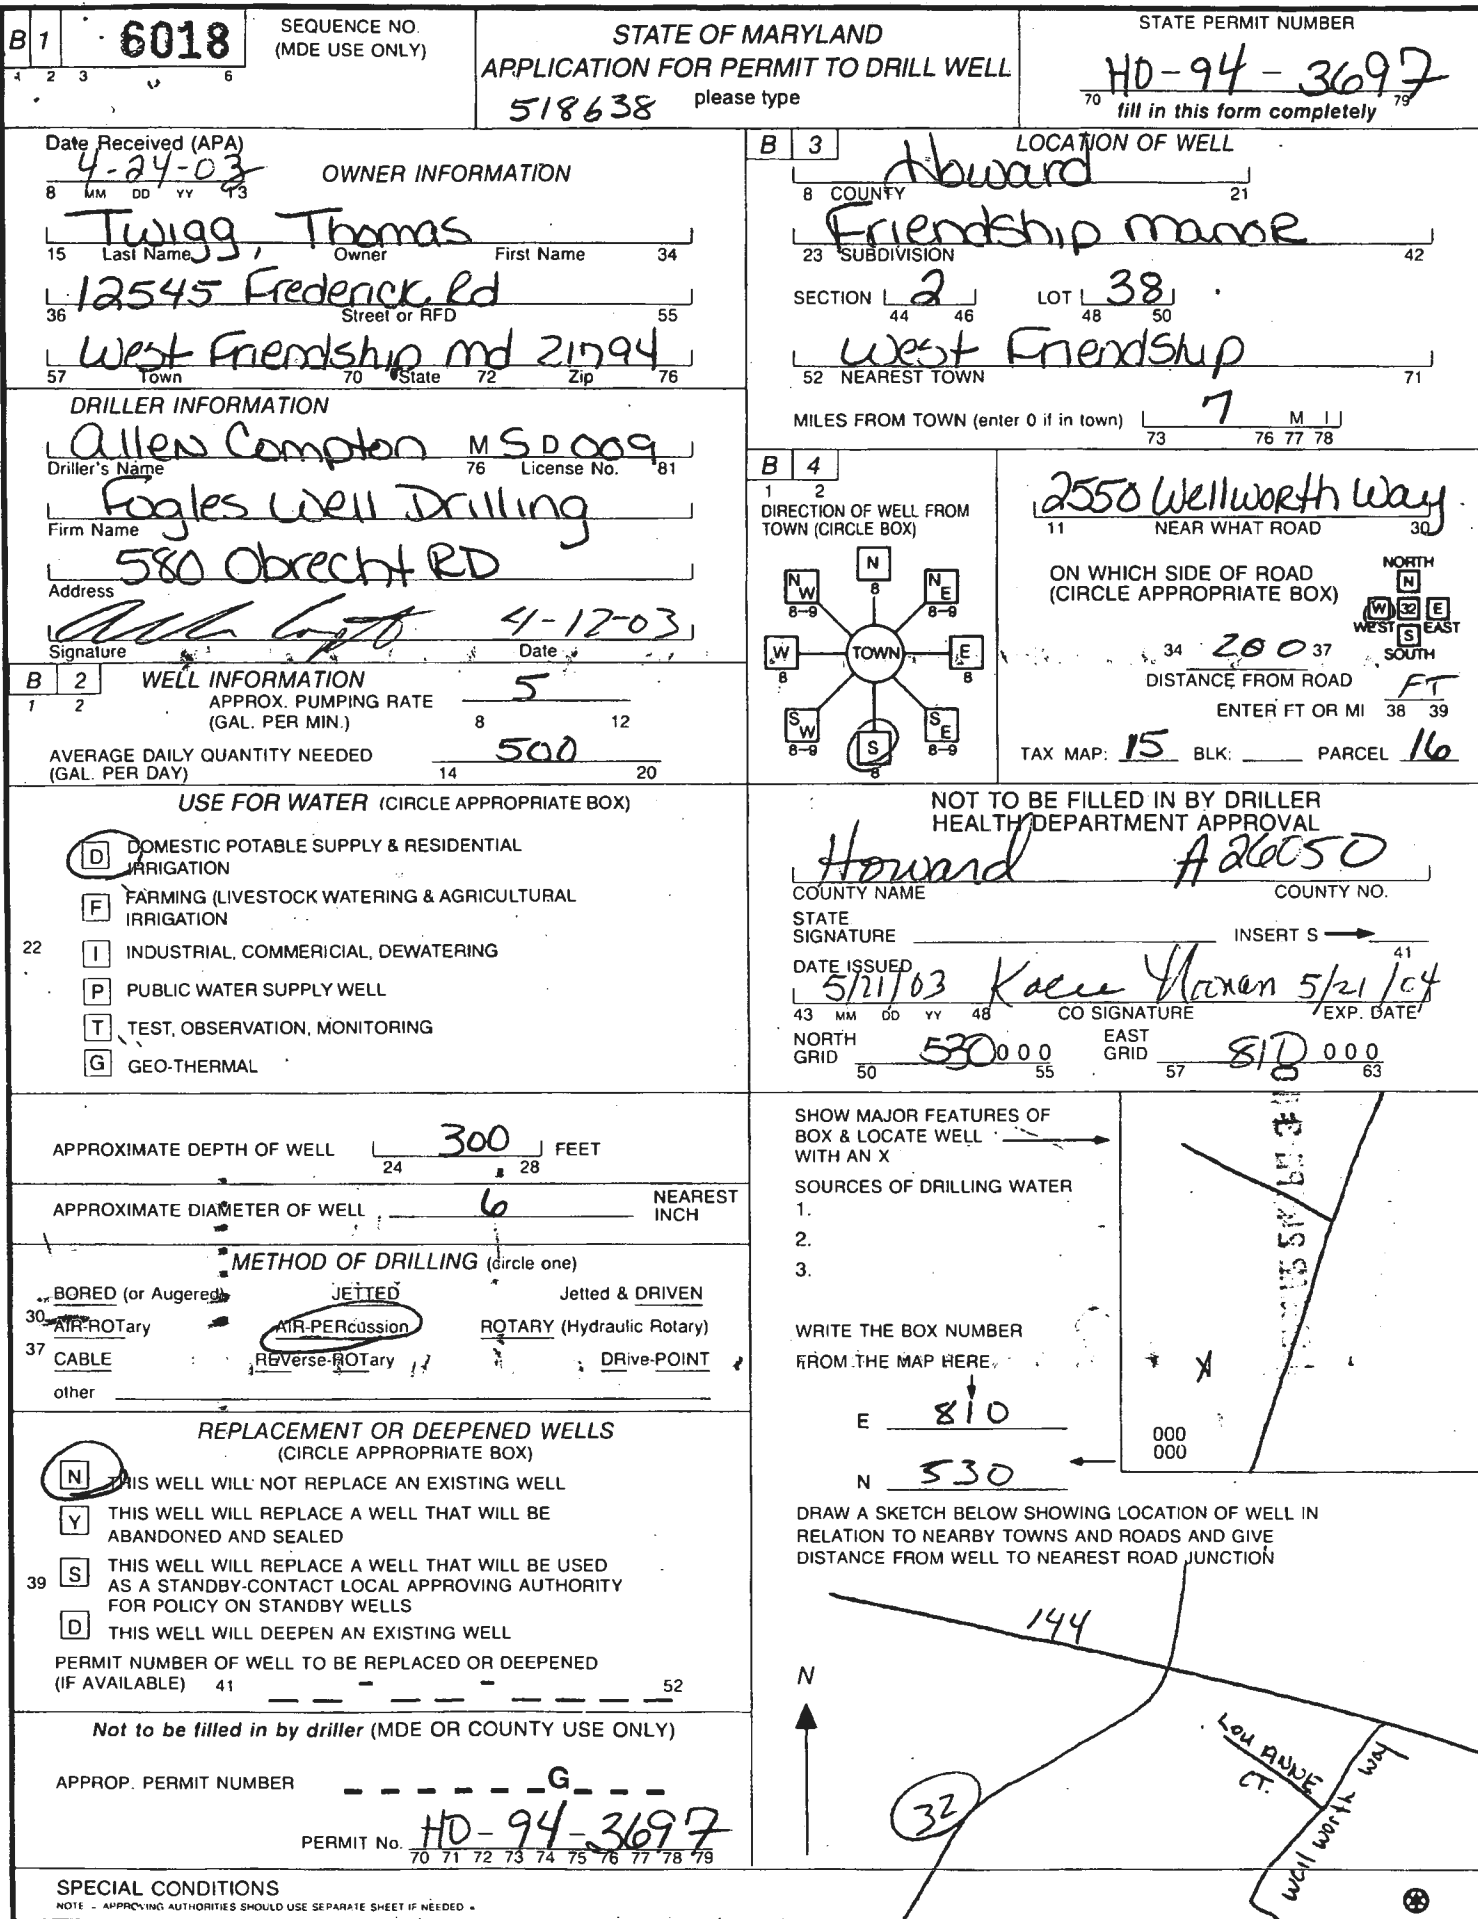 B 1 6018 SEQUENCE NO. (MDE USE ONLY)
1 2 3 6
STATE OF MARYLAND
APPLICATION FOR PERMIT TO DRILL WELL
518638 please type
STATE PERMIT NUMBER
HO-94-3697
70 79
fill in this form completely
Date Received (APA)
4-24-03
8 MM DD YY 13
OWNER INFORMATION
Twigg, Thomas
15 Last Name Owner First Name 34
12545 Frederick Rd
36 Street or RFD 55
West Friendship md 21794
57 Town 70 State 72 Zip 76
DRILLER INFORMATION
Allen Compton M S D 009
Driller's Name 76 License No. 81
Fogles Well Drilling
Firm Name
580 Obrecht RD
Address
4-12-03
Signature Date
B 2 WELL INFORMATION
1 2
APPROX. PUMPING RATE
(GAL. PER MIN.)
5
8 12
AVERAGE DAILY QUANTITY NEEDED
(GAL. PER DAY)
500
14 20
USE FOR WATER (CIRCLE APPROPRIATE BOX)
D DOMESTIC POTABLE SUPPLY & RESIDENTIAL
IRRIGATION
F FARMING (LIVESTOCK WATERING & AGRICULTURAL
IRRIGATION
22 I INDUSTRIAL, COMMERICIAL, DEWATERING
P PUBLIC WATER SUPPLY WELL
T TEST, OBSERVATION, MONITORING
G GEO-THERMAL
APPROXIMATE DEPTH OF WELL 300 FEET
24 28
APPROXIMATE DIAMETER OF WELL 6 NEAREST
INCH
METHOD OF DRILLING (circle one)
BORED (or Augered) JETTED Jetted & DRIVEN
30 AIR-ROTary AIR-PERcussion ROTARY (Hydraulic Rotary)
37 CABLE REVerse-ROTary DRive-POINT
other
REPLACEMENT OR DEEPENED WELLS
(CIRCLE APPROPRIATE BOX)
N THIS WELL WILL NOT REPLACE AN EXISTING WELL
Y THIS WELL WILL REPLACE A WELL THAT WILL BE
ABANDONED AND SEALED
39 S THIS WELL WILL REPLACE A WELL THAT WILL BE USED
AS A STANDBY-CONTACT LOCAL APPROVING AUTHORITY
FOR POLICY ON STANDBY WELLS
D THIS WELL WILL DEEPEN AN EXISTING WELL
PERMIT NUMBER OF WELL TO BE REPLACED OR DEEPENED
(IF AVAILABLE) 41 - - 52
Not to be filled in by driller (MDE OR COUNTY USE ONLY)
APPROP. PERMIT NUMBER G
PERMIT No. HO-94-3697
70 71 72 73 74 75 76 77 78 79
SPECIAL CONDITIONS
NOTE - APPROVING AUTHORITIES SHOULD USE SEPARATE SHEET IF NEEDED
B 3 LOCATION OF WELL
Howard
8 COUNTY 21
Friendship manor
23 SUBDIVISION 42
SECTION 2 LOT 38
44 46 48 50
West Friendship
52 NEAREST TOWN 71
MILES FROM TOWN (enter 0 if in town) 7 M I
73 76 77 78
B 4
1 2
DIRECTION OF WELL FROM
TOWN (CIRCLE BOX)
N
8
NW NE
8-9 8-9
W TOWN E
8 8
SW SE
8-9 8-9
S
8
2550 Wellworth Way
11 NEAR WHAT ROAD 30
ON WHICH SIDE OF ROAD
(CIRCLE APPROPRIATE BOX)
NORTH
N
W 32 E
WEST S EAST
SOUTH
34 200 37
DISTANCE FROM ROAD
ENTER FT OR MI FT
38 39
TAX MAP: 15 BLK: PARCEL 16
NOT TO BE FILLED IN BY DRILLER
HEALTH DEPARTMENT APPROVAL
Howard A26050
COUNTY NAME COUNTY NO.
STATE
SIGNATURE INSERT S
41
DATE ISSUED
5/21/03 5/21/04
43 MM DD YY 48 CO SIGNATURE EXP. DATE
NORTH
GRID 530 0 0 0
50 55
EAST
GRID 810 0 0 0
57 63
SHOW MAJOR FEATURES OF
BOX & LOCATE WELL
WITH AN X
SOURCES OF DRILLING WATER
1.
2.
3.
WRITE THE BOX NUMBER
FROM THE MAP HERE
E 810
N 530
X
000
000
DRAW A SKETCH BELOW SHOWING LOCATION OF WELL IN
RELATION TO NEARBY TOWNS AND ROADS AND GIVE
DISTANCE FROM WELL TO NEAREST ROAD JUNCTION
144
N
32
LOU ANNE
CT.
Wellworth Way